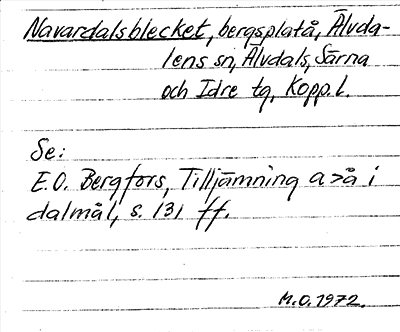 Navardalsblecket, bergsplatå, Älvda-
lens sn, Älvdals, Särna
och Idre tg, Kopp.l.
Se:
E.O. Bergfors, Tilljämning a>å i
dalmål, s. 131 ff.
M.O. 1972.